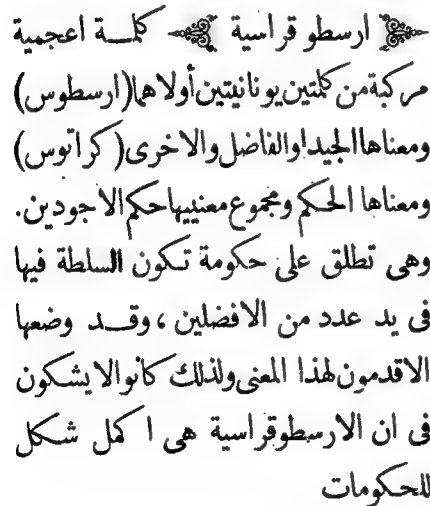 ارسطو قراسية كلمة اعجمية
مركبة من كلمتين يونانيتين أولاهما (ارسطوس)
ومعناها الجيد اوالفاضل والاخرى (كراتوس)
ومعناها الحكم ومجموع معنييها حكم الاجودين.
وهى تطلق على حكومة تكون السلطة فيها
فى يد عدد من الافضلين ، وقد وضعها
الاقدمون لهذا المعنى ولذلك كانوا لا يشكون
فى ان الارسطوقراسية هى ا كمل شكل
للحكومات